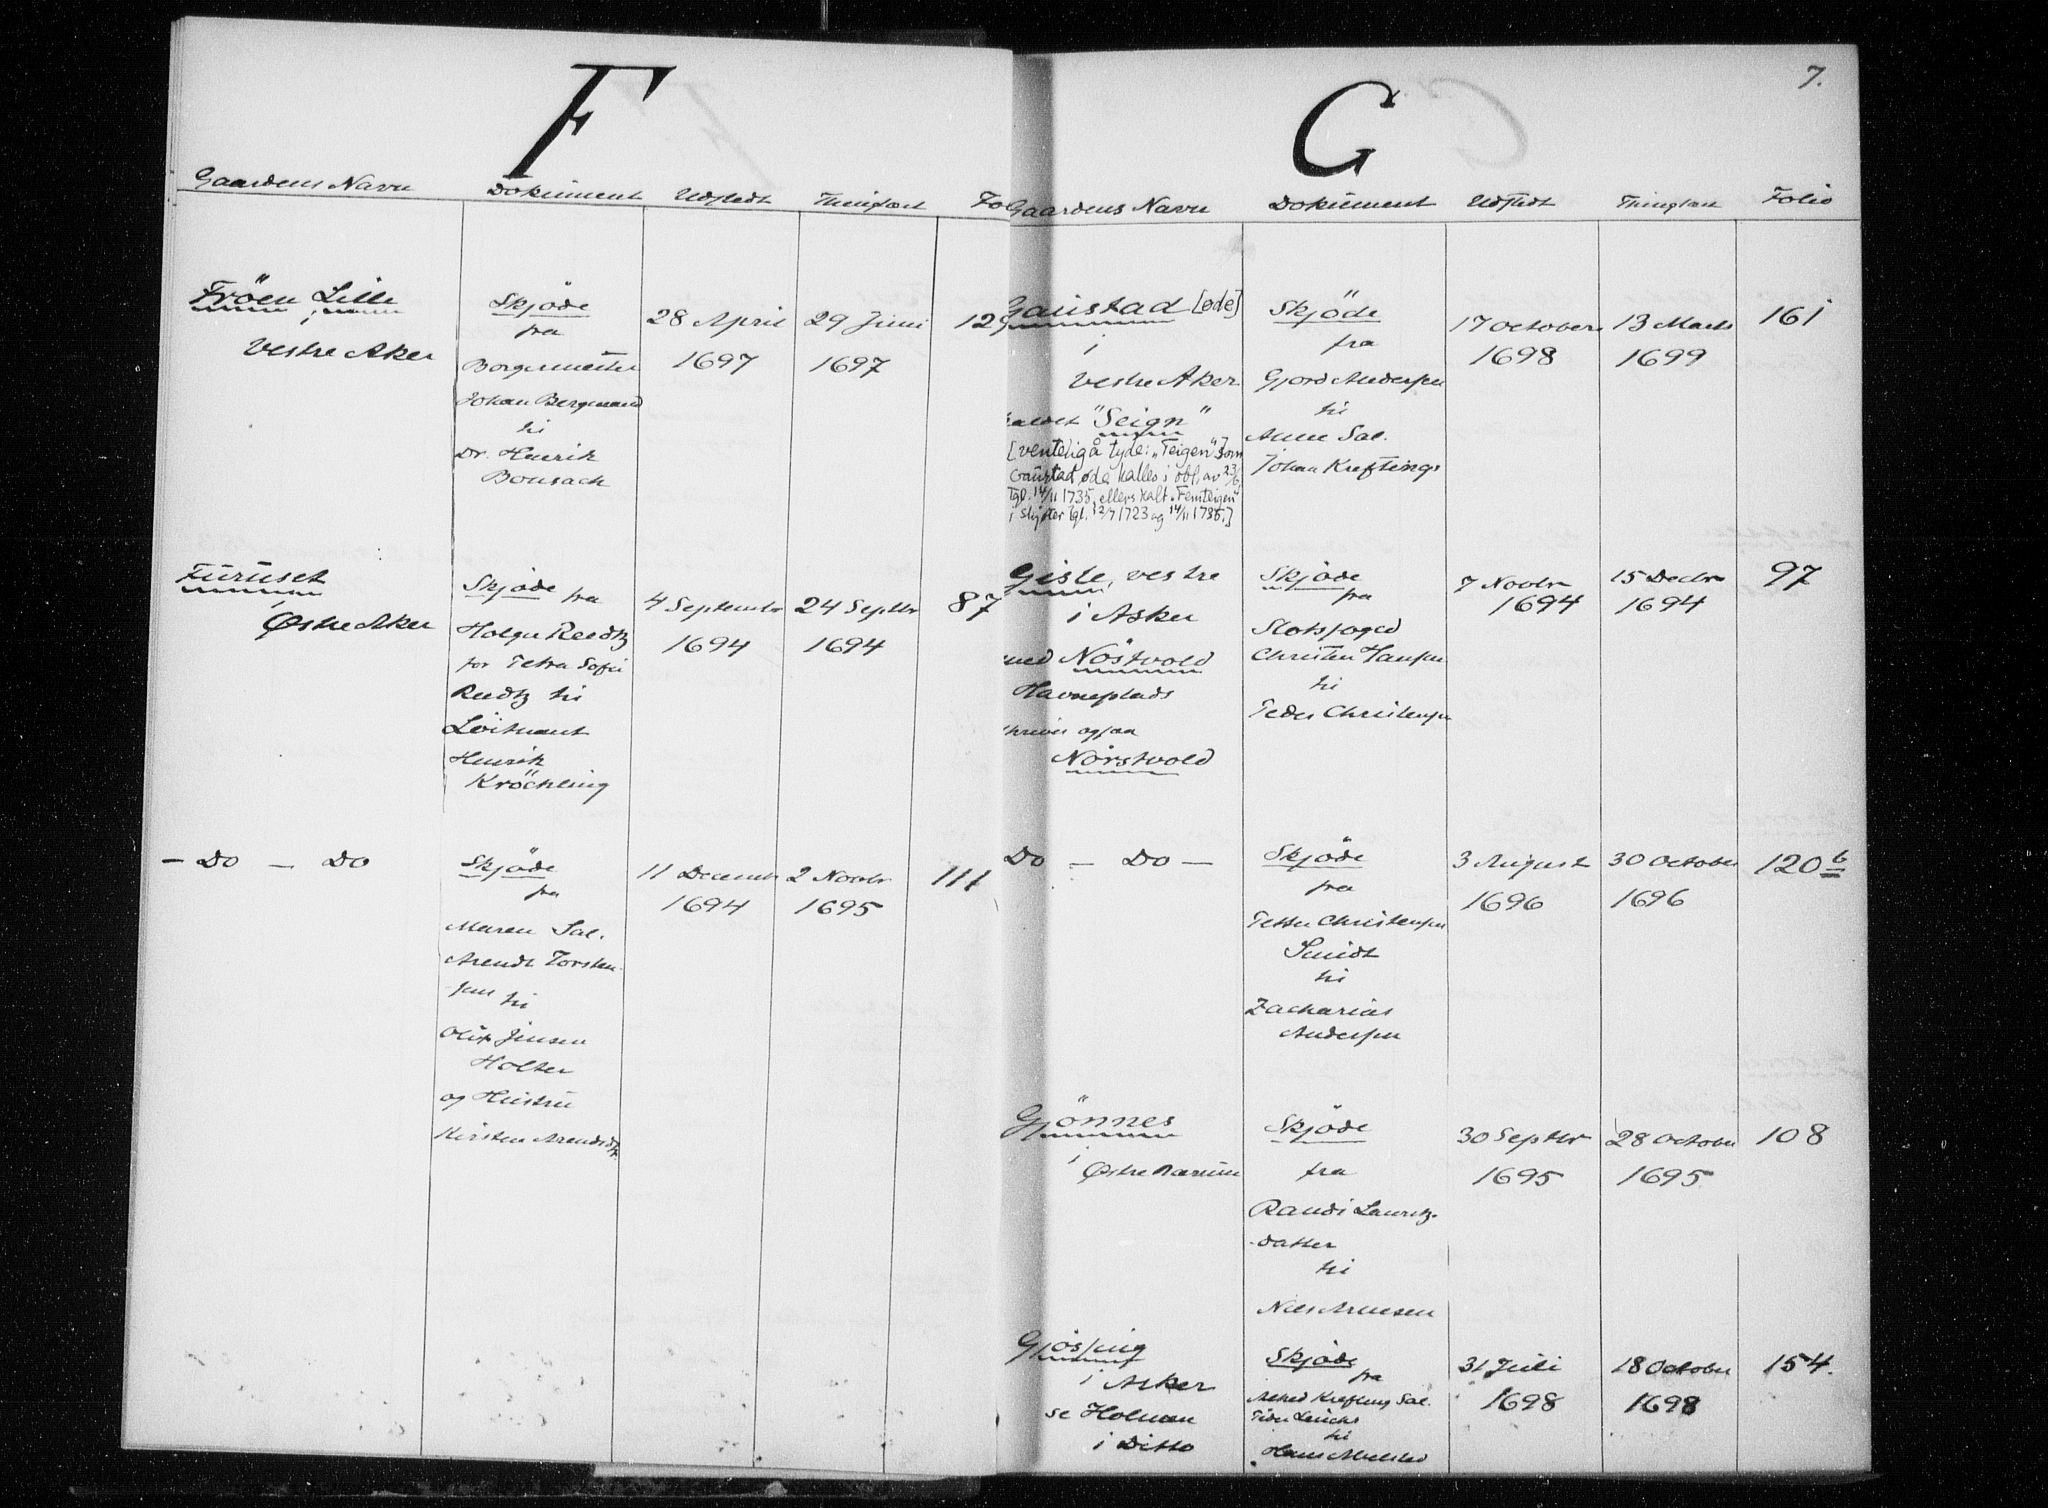 F
Gaardens Navn Dokument Udstedt Thinglæst Fo
Fröen Lille
i
Vestre Aker
Skjöde
fra
Borgermester
Johan Bergmand
til
Dr. Henrik
Bousach
28 April
1697
29 Juni
1697
129
Furuset
i
Østre Aker
Skjöde fra
Holger Reedtz
for Petra Sofie
Reedtz til
Løitnant
Henrik
Kröchling
4 Septembr
1694
24 Septbr
1694
87
- Do - Do
Skjöde
fra
Maren Sal.
Arendt Torsten-
sens til
Oluf Jensen
Holter
og Hustru
Kirsten Arendsd
11 Decembr
1694
2 Novbr
1695
111
7.
G
Gaardens Navn Dokument Udstedt Thinglæst Folio
Gaustad [øde]
i
Vestre Aker
kaldet "Seign"
[ventelig å tyde: "Teigen" som
Gaustad øde kalles i obl. av 23/6
tgl. 14/11 1735, ellers kalt "Femteigen"
i skjøter tgl. 12/7 1723 og 14/11 1735.]
Skjöde
fra
Gjord Andersen
til
Anne Sal.
Johan Kreftings
17 October
1698
13 Marts
1699
161
Gisle, vestre
i Asker
med Nöstvold
Havneplads
skrives ogsaa
Nörstvold
Skjöde
fra
Slotsfoged
Christen Hansen
til
Peder Christensen
7 Novbr
1694
15 Decbr
1694
97
Do - Do -
Skjöde
fra
Petter Christensen
Smidt
til
Zacharias
Andersen
3 August
1696
30 October
1696
120 b
Gjönnes
i
Østre Bærum
Skjöde
fra
Randi Lauritz-
datter
til
Niels Arnesen
30 Septbr
1695
28 October
1695
108
Gjösjing
i Asker
se Holmen
i Ditto
Skjöde
fra
Krefting Sal.
til
Hans
31 Juli
1698
18 October
1698
154.